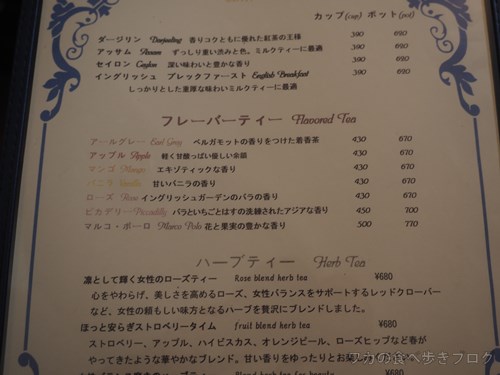 カップ(cup) ポット(pot)
ダージリン Darjeeling 香りコクともに優れた紅茶の王様 390 690
アッサム Assam ずっしり重い渋みと色。ミルクティーに最適 390 690
セイロン Ceylon 深い味わいと豊かな香り 390 690
イングリッシュ ブレックファースト English Breakfast 390 690
しっかりとした重厚な味わいミルクティーに最適
フレーバーティー Flavored Tea
アールグレー Earl Grey ベルガモットの香りをつけた着香茶 430 670
アップル Apple 軽く甘酸っぱい優しい余韻 430 670
マンゴ Mango エキゾティックな香り 430 670
バニラ Vanilla 甘いバニラの香り 430 670
ローズ Rose イングリッシュガーデンのバラの香り 430 670
ピカデリー Piccadilly バラといちごとはすの洗練されたアジアな香り 450 700
マルコ・ポーロ Marco Polo 花と果実の豊かな香り 500 770
ハーブティー Herb Tea
凛として輝く女性のローズティー Rose blend herb tea ¥680
心をやわらげ、美しさを高めるローズ、女性バランスをサポートするレッドクローバー
など、女性の頼もしい味方となるハーブを贅沢にブレンドしました。
ほっと安らぎストロベリータイム fruit blend herb tea ¥680
ストロベリー、アップル、ハイビスカス、オレンジピール、ローズヒップなど春が
やってきたような華やかなブレンド。甘い香りをゆったりとお
の食べ歩きブログ
Blend herb tea for beauty